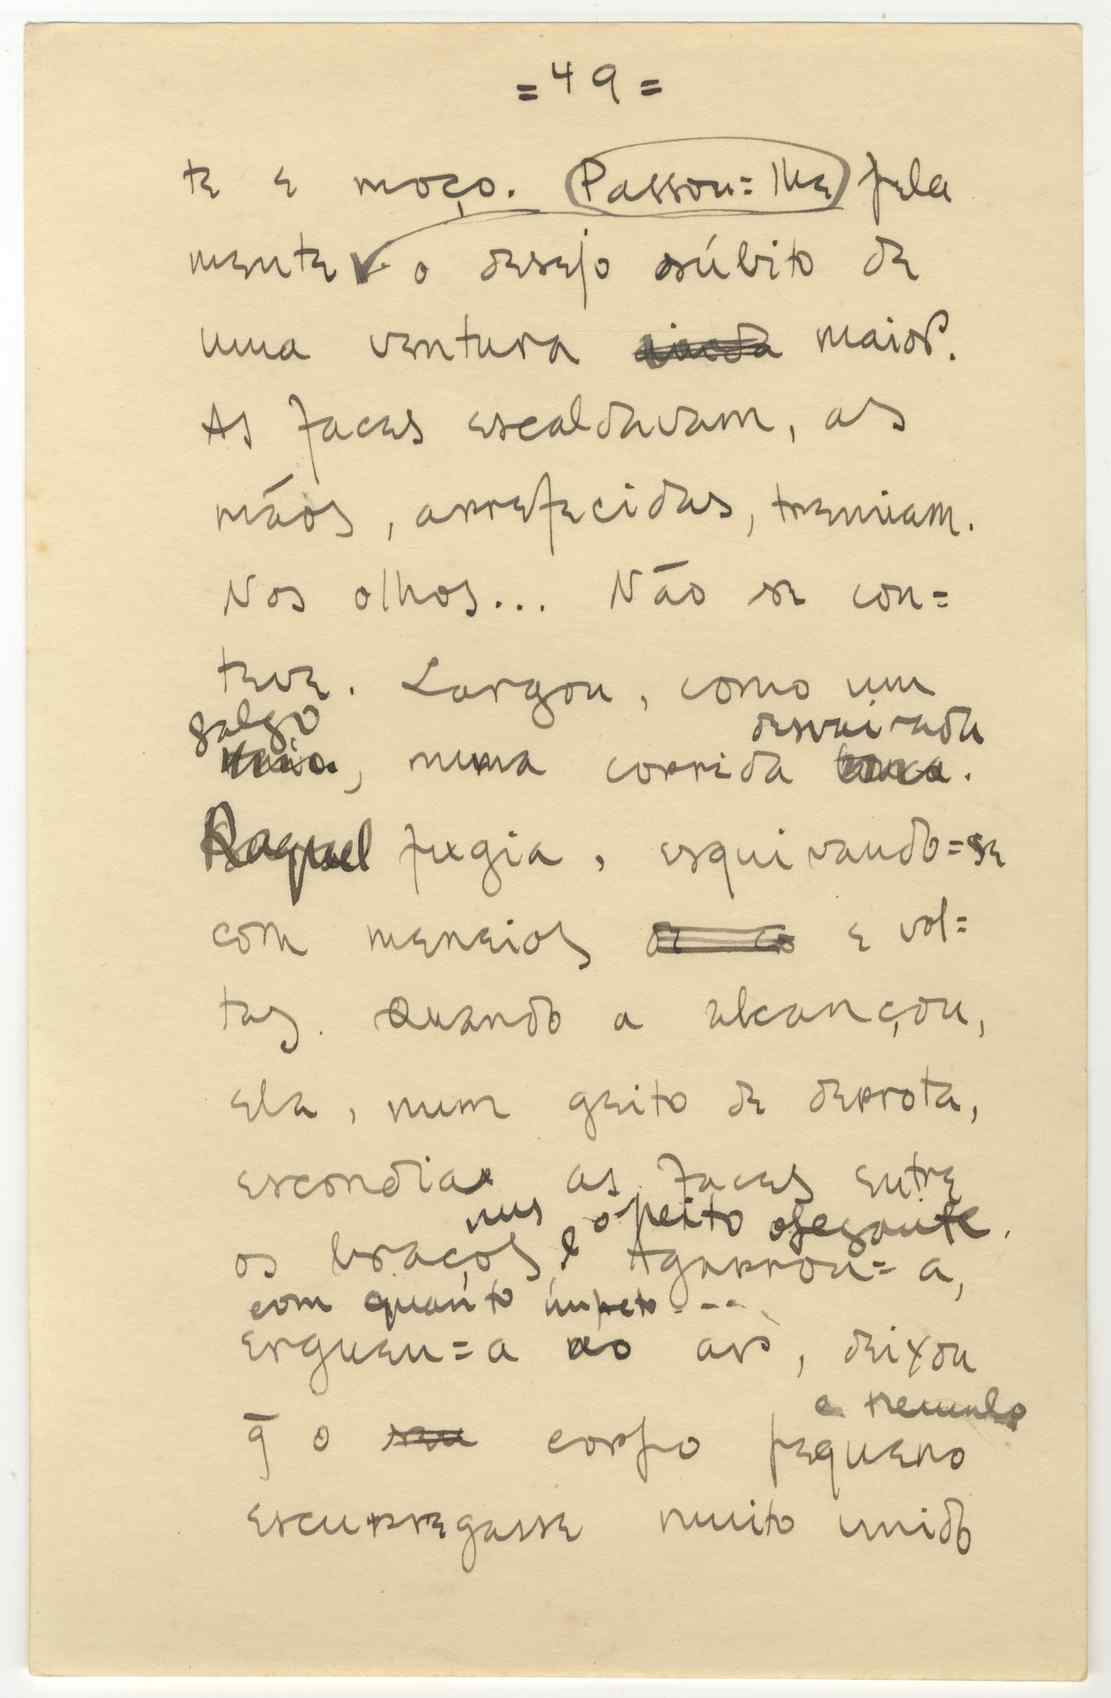 =49=
te e moço. Passou=lhe pela
mente o desejo súbito de
uma ventura ainda maior.
As faces escaldavam, as
mãos, arrefecidas, tremiam.
Nos olhos... Não se con=
teve. Largou, como um
galgo desvairada
, numa corrida louca.
Raquel fugia, esquivando=se
com meneios e vol=
tas. Quando a alcançou,
ela, num geito de derrota,
escondia as faces entre
nus o peito ofegante.
os braços e Agarrou=a,
com quanto ímpeto...
ergueu=a ao ar, deixou
e tremulo
q̄ o seu corpo pequeno
escurregasse muito unido